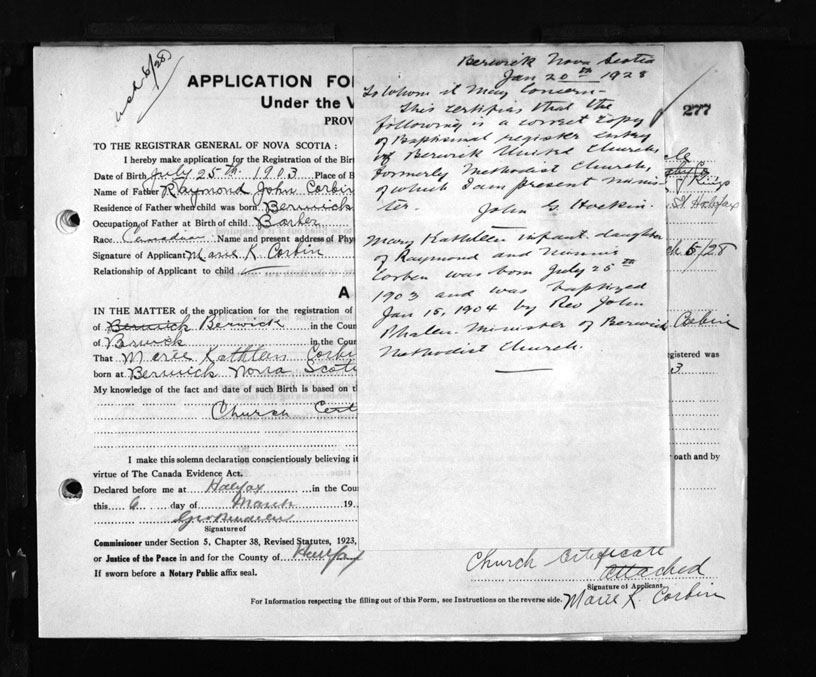 APPLICATION FO
Under the V
PROV
TO THE REGISTRAR GENERAL OF NOVA SCOTIA :
I hereby make application for the Registration of the Birt
Date of Birth July 25th 1903 Place of B
Name of Father Raymond John Corbin
Residence of Father when child was born Berwick
Occupation of Father at Birth of child Barber
Race Canadian Name and present address of Phys
Signature of Applicant Marie K. Corbin
Relationship of Applicant to child
A
IN THE MATTER of the application for the registration of
of Berwick Berwick in the Coun
of Berwick in the Coun
That Marie Kathleen Corbi
born at Berwick Nova Scoti
My knowledge of the fact and date of such Birth is based on th
Church Cert
I make this solemn declaration conscientiously believing it
virtue of The Canada Evidence Act.
Declared before me at Halifax in the Coun
this 6 day of March 19
Signature of
Commissioner under Section 5, Chapter 38, Revised Statutes, 1923,
or Justice of the Peace in and for the County of Halifax
If sworn before a Notary Public affix seal.
For Information respecting the filling out of this Form, see Instructions on the reverse side.
Berwick Nova Scotia
Jan 20th 1928
To whom it May Concern-
This certifies that the
following is a correct copy
of Baptismal register entry
of Berwick United Church,
formerly Methodist Church,
of which I am present minis-
ter. John G. Hockin.
Mary Kathleen infant daughter
of Raymond and Minnie
Corben was born July 25th
1903 and was baptized
Jan 15, 1904 by Rev John
Phalen Minister of Berwick
Methodist Church.
277
Kings
St Halifax
5/28
Corbin
egistered was
3
oath and by
Church Certificate
attached
Signature of Applicant
Marie K. Corbin